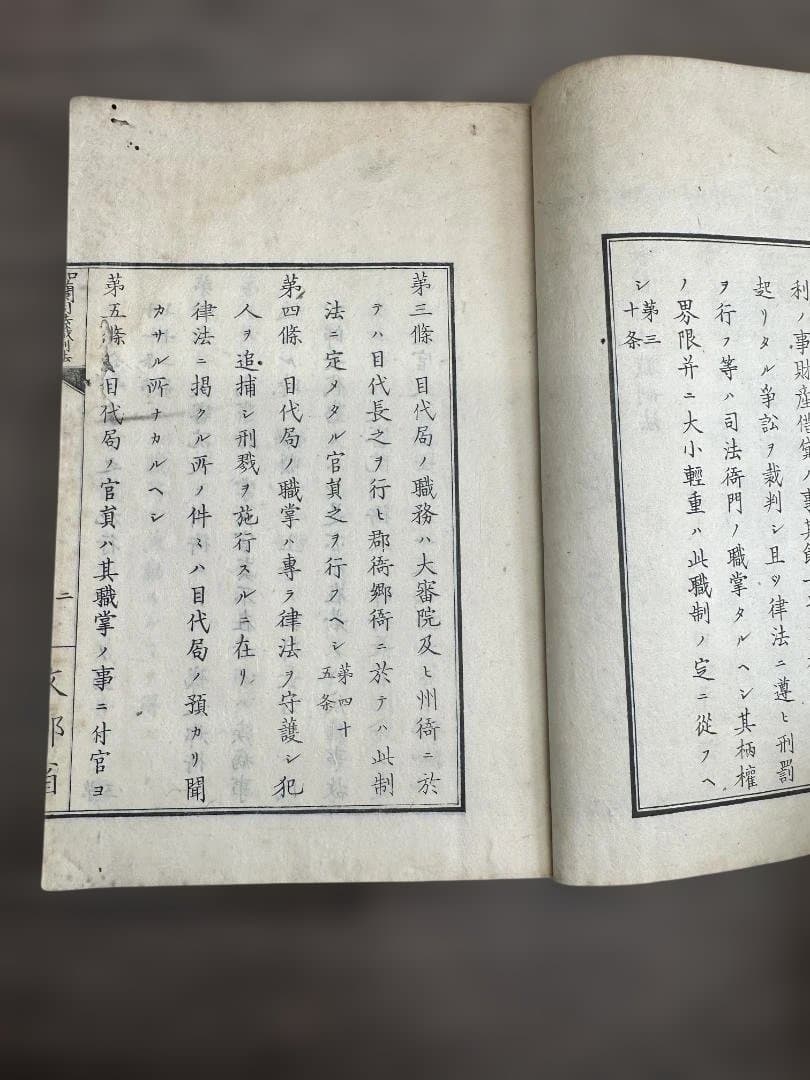 利ノ事財産借貸ノ事其餘
起リタル爭訟ヲ裁判シ且ツ律法ニ遵ヒ刑罰
ヲ行フ等ハ司法衙門ノ職掌タルヘシ其柄權
ノ界限并ニ大小輕重ハ此職制ノ定ニ從フヘ
シ第三十条
第三條 目代局ノ職務ハ大審院及ヒ州衙ニ於
テハ目代長之ヲ行ヒ郡衙郷衙ニ於テハ此制
法ニ定メタル官員之ヲ行フヘシ第四十五条
第四條 目代局ノ職掌ハ專ラ律法ヲ守護シ犯
人ヲ追捕シ刑戮ヲ施行スルニ在リ
律法ニ掲クル所ノ件々ハ目代局ノ預カリ聞
カサル所ナカルヘシ
第五條 目代局ノ官員ハ其職掌ノ事ニ付官ヨ
二
文部省